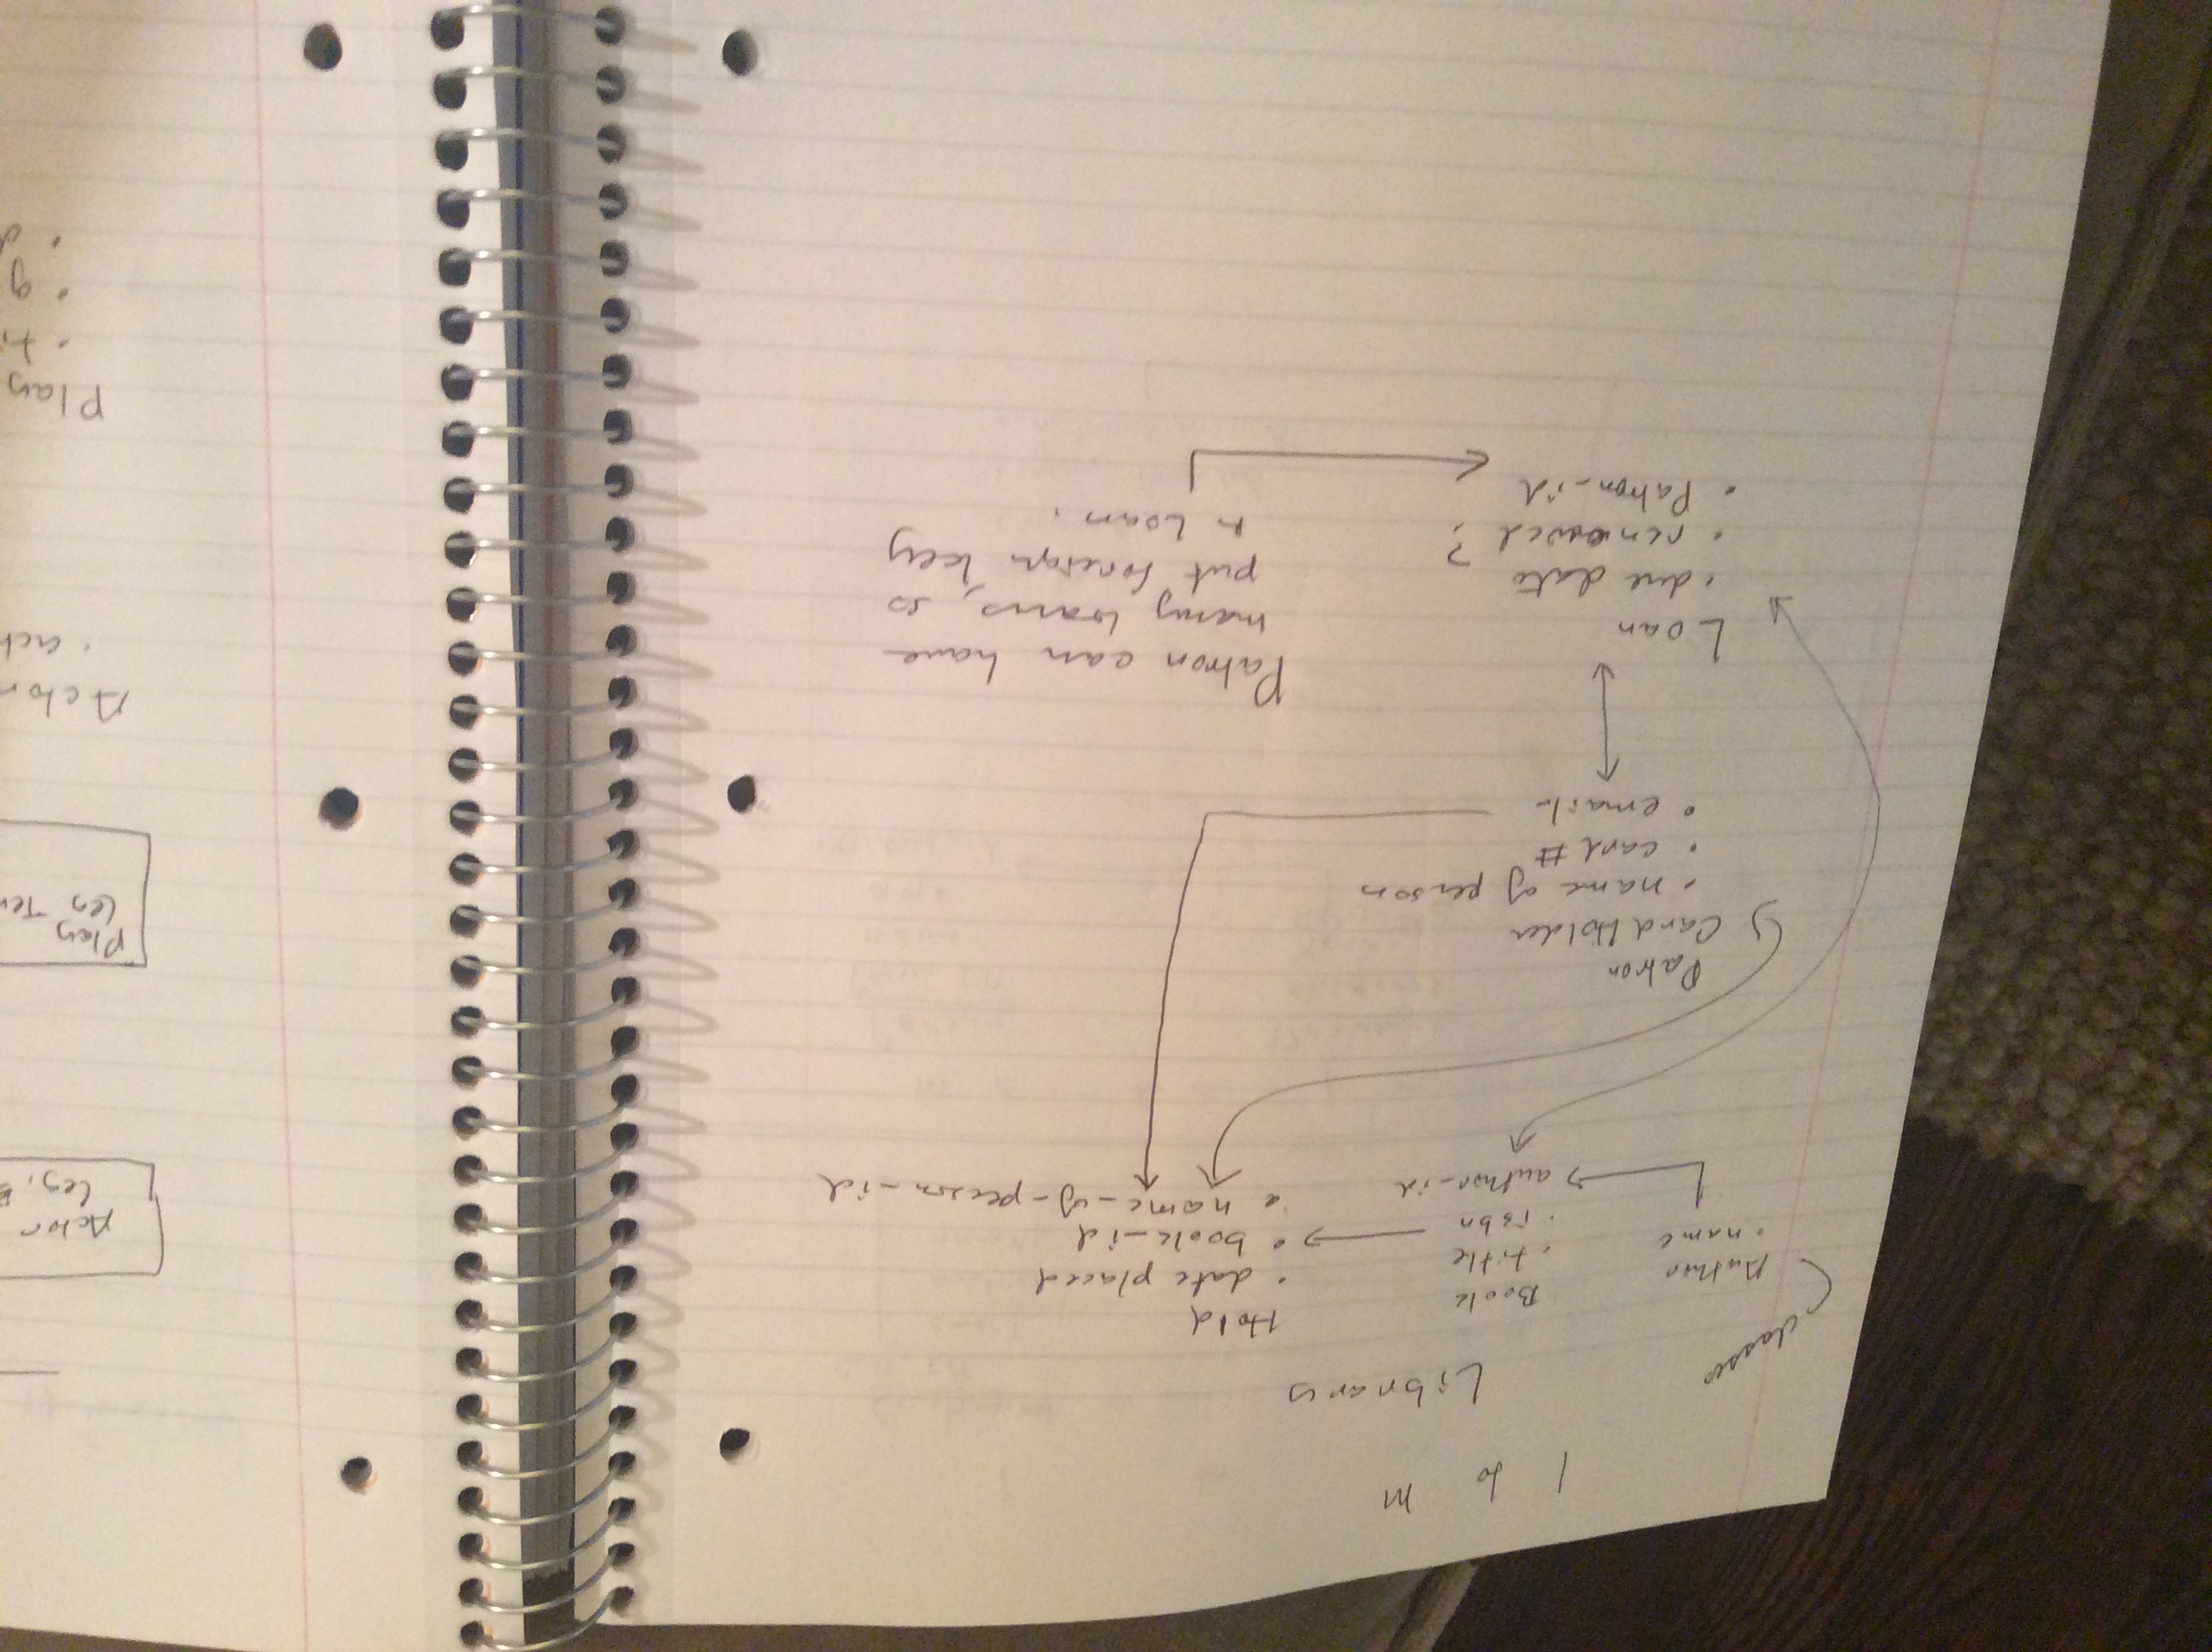 1 to M
Library
classes
Author
• name
Book
• title
• isbn
author_id
Hold
• date placed
• book_id
• name_of_person_id
Patron
Card Holder
• name of person
• card #
• email
Loan
• due date
• renewed ?
• Patron_id
Patron can have
many loans, so
put foreign key
Loan.
Actor
(eg,
Play
(eg
Actor
Play